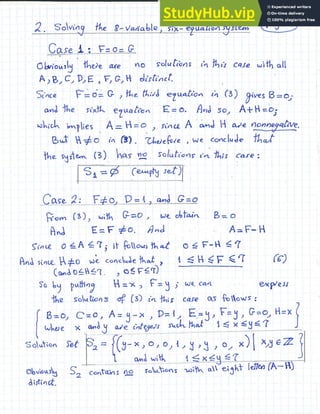 AcademiaHub
Experienced writers
On-time delivery
100% plagiarism free
studyhub.vip
2. Solving the 8-variable, six-equation system
Case 1: F=0=G
Obviously there are no solutions in this case with all
A, B, C, D, E, F, G, H distinct.
Since F=0=G, the third equation in (3) gives B=0;
and the sixth equation E=0. And so, A+H=0;
which implies A=H=0, since A and H are nonnegative.
But H≠0 in (3). Therefore, we conclude that
the system (3) has no solutions in this case:
S₁=∅ (empty set)
Case 2: F≠0, D=1, and G=0
From (3), with G=0, we obtain B=0
And E=F≠0. And A=F-H
Since 0≤A≤7; it follows that 0≤F-H≤7
And since H≠0 we conclude that, 1≤H≤F≤7 (6)
(and 0≤H≤7, 0≤F≤7)
So by putting H=x, F=y; we can express
the solutions of (3) in this case as follows:
{B=0, C=0, A=y-x, D=1, E=y, F=y, G=0, H=x}
where x and y are integers such that 1≤x≤y≤7
Solution Set S₂ = {(y-x, 0, 0, 1, y, y, 0, x) | x,y∈ℤ
and with 1≤x≤y≤7}
Obviously S₂ contains no solutions with all eight letters (A-H)
distinct.